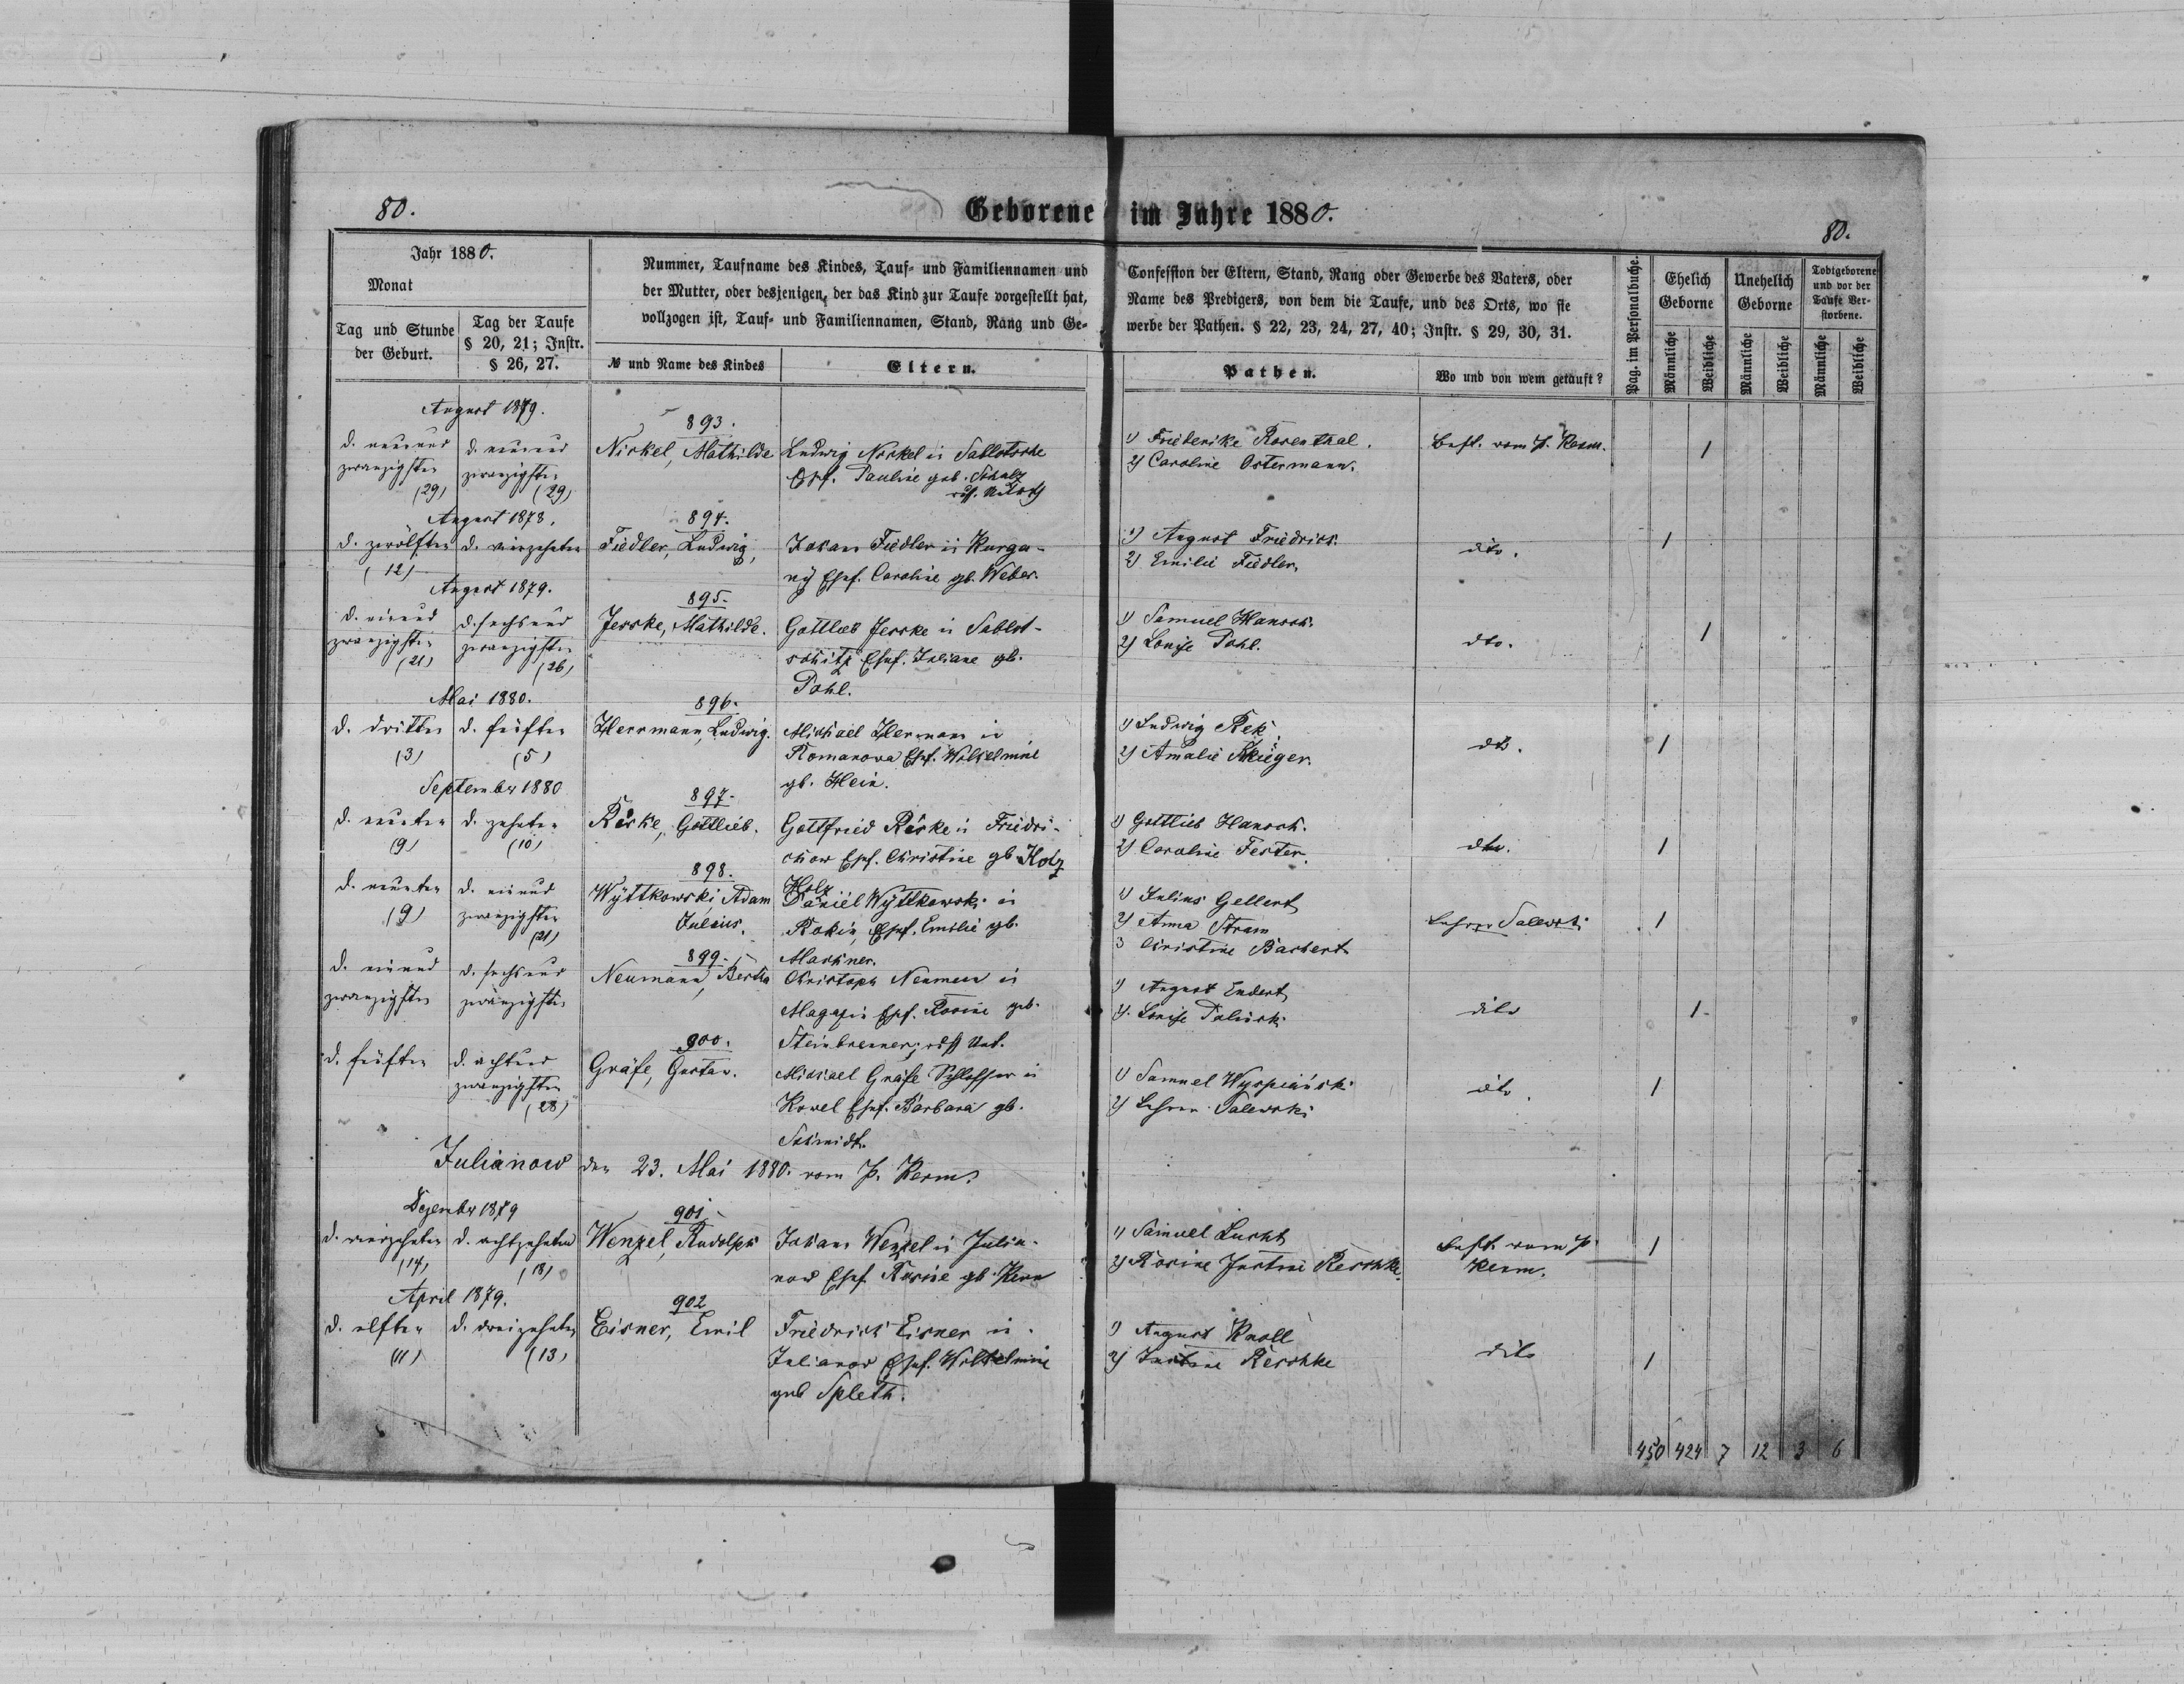 80.
Geborene im Jahre 1880.
80.
Jahr 1880.
Monat
Tag und Stunde
der Geburt.
Tag der Taufe
§ 20, 21; Instr.
§ 26, 27.
Nummer, Taufname des Kindes, Tauf- und Familiennamen und
der Mutter, oder desjenigen, der das Kind zur Taufe vorgestellt hat,
vollzogen ist, Tauf- und Familiennamen, Stand, Rang und Ge-
№ und Name des Kindes
Eltern.
Confession der Eltern, Stand, Rang oder Gewerbe des Vaters, oder
Name des Predigers, von dem die Taufe, und des Orts, wo sie
werbe der Pathen. § 22, 23, 24, 27, 40; Instr. § 29, 30, 31.
Pathen.
Wo und von wem getauft?
Pag. im Personalbuche.
Ehelich
Geborne
Unehelich
Geborne
Todtgeborene
und vor der
Taufe Ver-
storbene.
Männliche
Weibliche
Männliche
Weibliche
Männliche
Weibliche
August 1879.
893.
d. neunund
zwanzigsten
(29)
d. neunund
zwanzigsten
(29)
Nickel, Mathilde
Ludwig Nickel in Sablotsche
Ehef. Pauline geb. Schulz
1) Friederike Rosenthal.
2) Caroline Ostermann.
Best. vom P. Kerm.
1
August 1878.
894.
d. zwölften
(12)
d. vierzehnten
Fiedler, Ludwig,
Johann Fiedler in Kurga-
ny Ehef. Caroline gb. Weber.
1) August Friedrich.
2) Emilie Fiedler.
dito.
1
August 1879.
895.
d. einund
zwanzigsten
(21)
d. sechsund
zwanzigsten
(26)
Jeschke, Mathilde.
Gottlieb Jeschke in Sablot-
schitz Ehef. Juliane gb.
Pohl.
1) Samuel Hansch.
2) Louise Pohl.
dto.
1
Mai 1880.
896.
d. dritten
(3)
d. fünften
(5)
Herrmann, Ludwig.
Michael Hermann in
Romanowa Ehef. Wilhelmine
gb. Hein.
1) Ludwig Rek.
2) Amalie Krüger.
dto.
1
September 1880
897.
d. neunten
(9)
d. zehnten
(10)
Röske, Gottlieb.
Gottfried Röske in Friedri-
chow Ehef. Christine gb Holz
Holz
1) Gottlieb Hansch.
2) Caroline Fester.
dto.
1
898.
d. neunten
(9)
d. einund
zwanzigsten
(21)
Wyttkowski Adam
Julius.
Daniel Wyttkowski in
Rokin, Ehef. Emilie gb.
Maschner.
1) Julius Gellert
2) Anna Stram
3 Christine Bachert
Lehrer Salewski
1
899.
d. einund
zwanzigsten
d. sechsund
zwanzigsten
Neumann, Bertha
Christoph Neumann in
Magazin Ehef. Rosine geb.
Steinbrenner;
1) August Endert
2). Louise Palinski
dito
1.
900.
d. fünften
d. achtund
zwanzigsten
(28)
Gräfe, Gustav.
Michael Gräfe Schlosser in
Kowel Ehef. Barbara gb.
Schmidt.
1) Samuel Wyspiański
2) Lehrer Salewski
dito.
1
Julianow den 23. Mai 1880. vom P. Kerm.
Dezember 1879
901.
d. vierzehnten
(14)
d. achtzehnten
(18)
Wenzel, Rudolph
Johann Wenzel in Julia-
now Ehef. Rosine gb. Kern
1) Samuel Lucht
2) Rosine Justine Reschke.
Best. vom P.
Kerm.
1
April 1879.
902
d. elften
(11)
d. dreizehnten
(13)
Eisner, Emil
Friedrich Eisner in
Julianow Ehef. Wilhelmine
geb Spleth.
1) August Knoll
2) Justine Reschke
dito
1
450 424 7 12 3 6